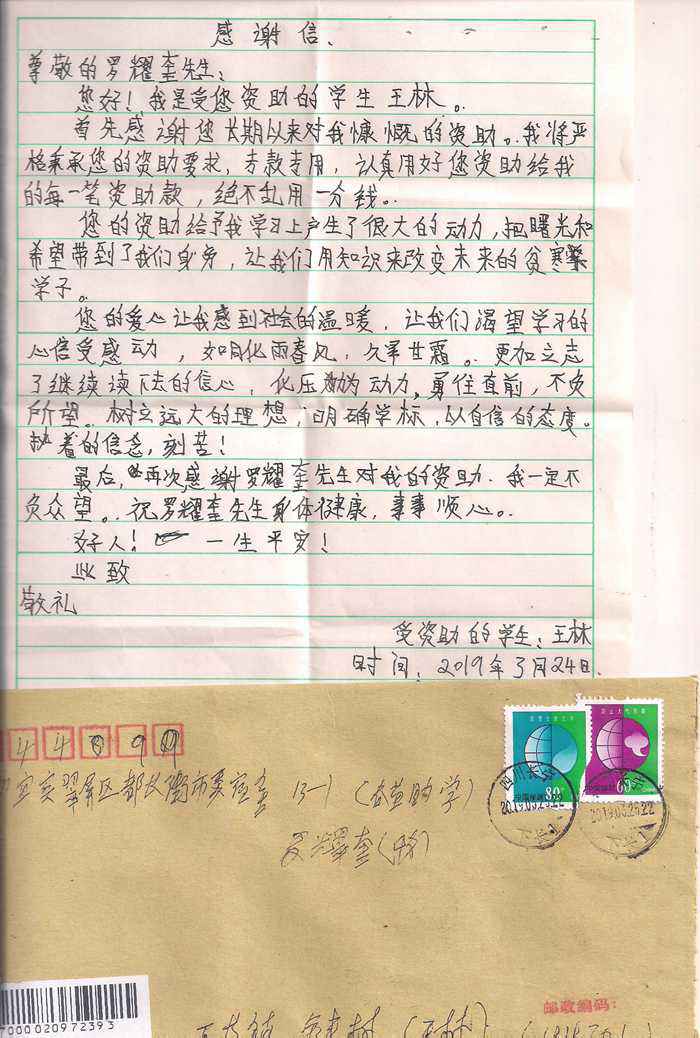 感谢信、
尊敬的罗耀奎先生：
您好！我是受您资助的学生王林。
首先感谢您长期以来对我慷慨的资助。我将严
格秉承您的资助要求，专款专用，认真用好您资助给我
的每一笔资助款，绝不乱用一分钱。
您的资助给予我学习上产生了很大的动力，把曙光和
希望带到了我们身旁，让我们用知识来改变未来的贫寒
学子。
您的爱心让我感到社会的温暖，让我们渴望学习的
心倍受感动，如化雨春风，久旱甘霜。更加立志
了继续读下去的信心，化压力为动力，勇往直前，不负
所望。树立远大的理想，明确学标，以自信的态度。
执着的信念，刻苦！
最后，再次感谢罗耀奎先生对我的资助。我一定不
负众望。祝罗耀奎先生身体健康，事事顺心。
好人！一生平安！
此致
敬礼
受资助的学生：王林
时间：2019年3月24日
中国邮政 80
中国邮政 60
四川
2019.03.25
宜宾翠屏区都长街市委宿舍 13-1（慈善助学）
罗耀奎（收）
邮政编码：
000020972393
（王林）